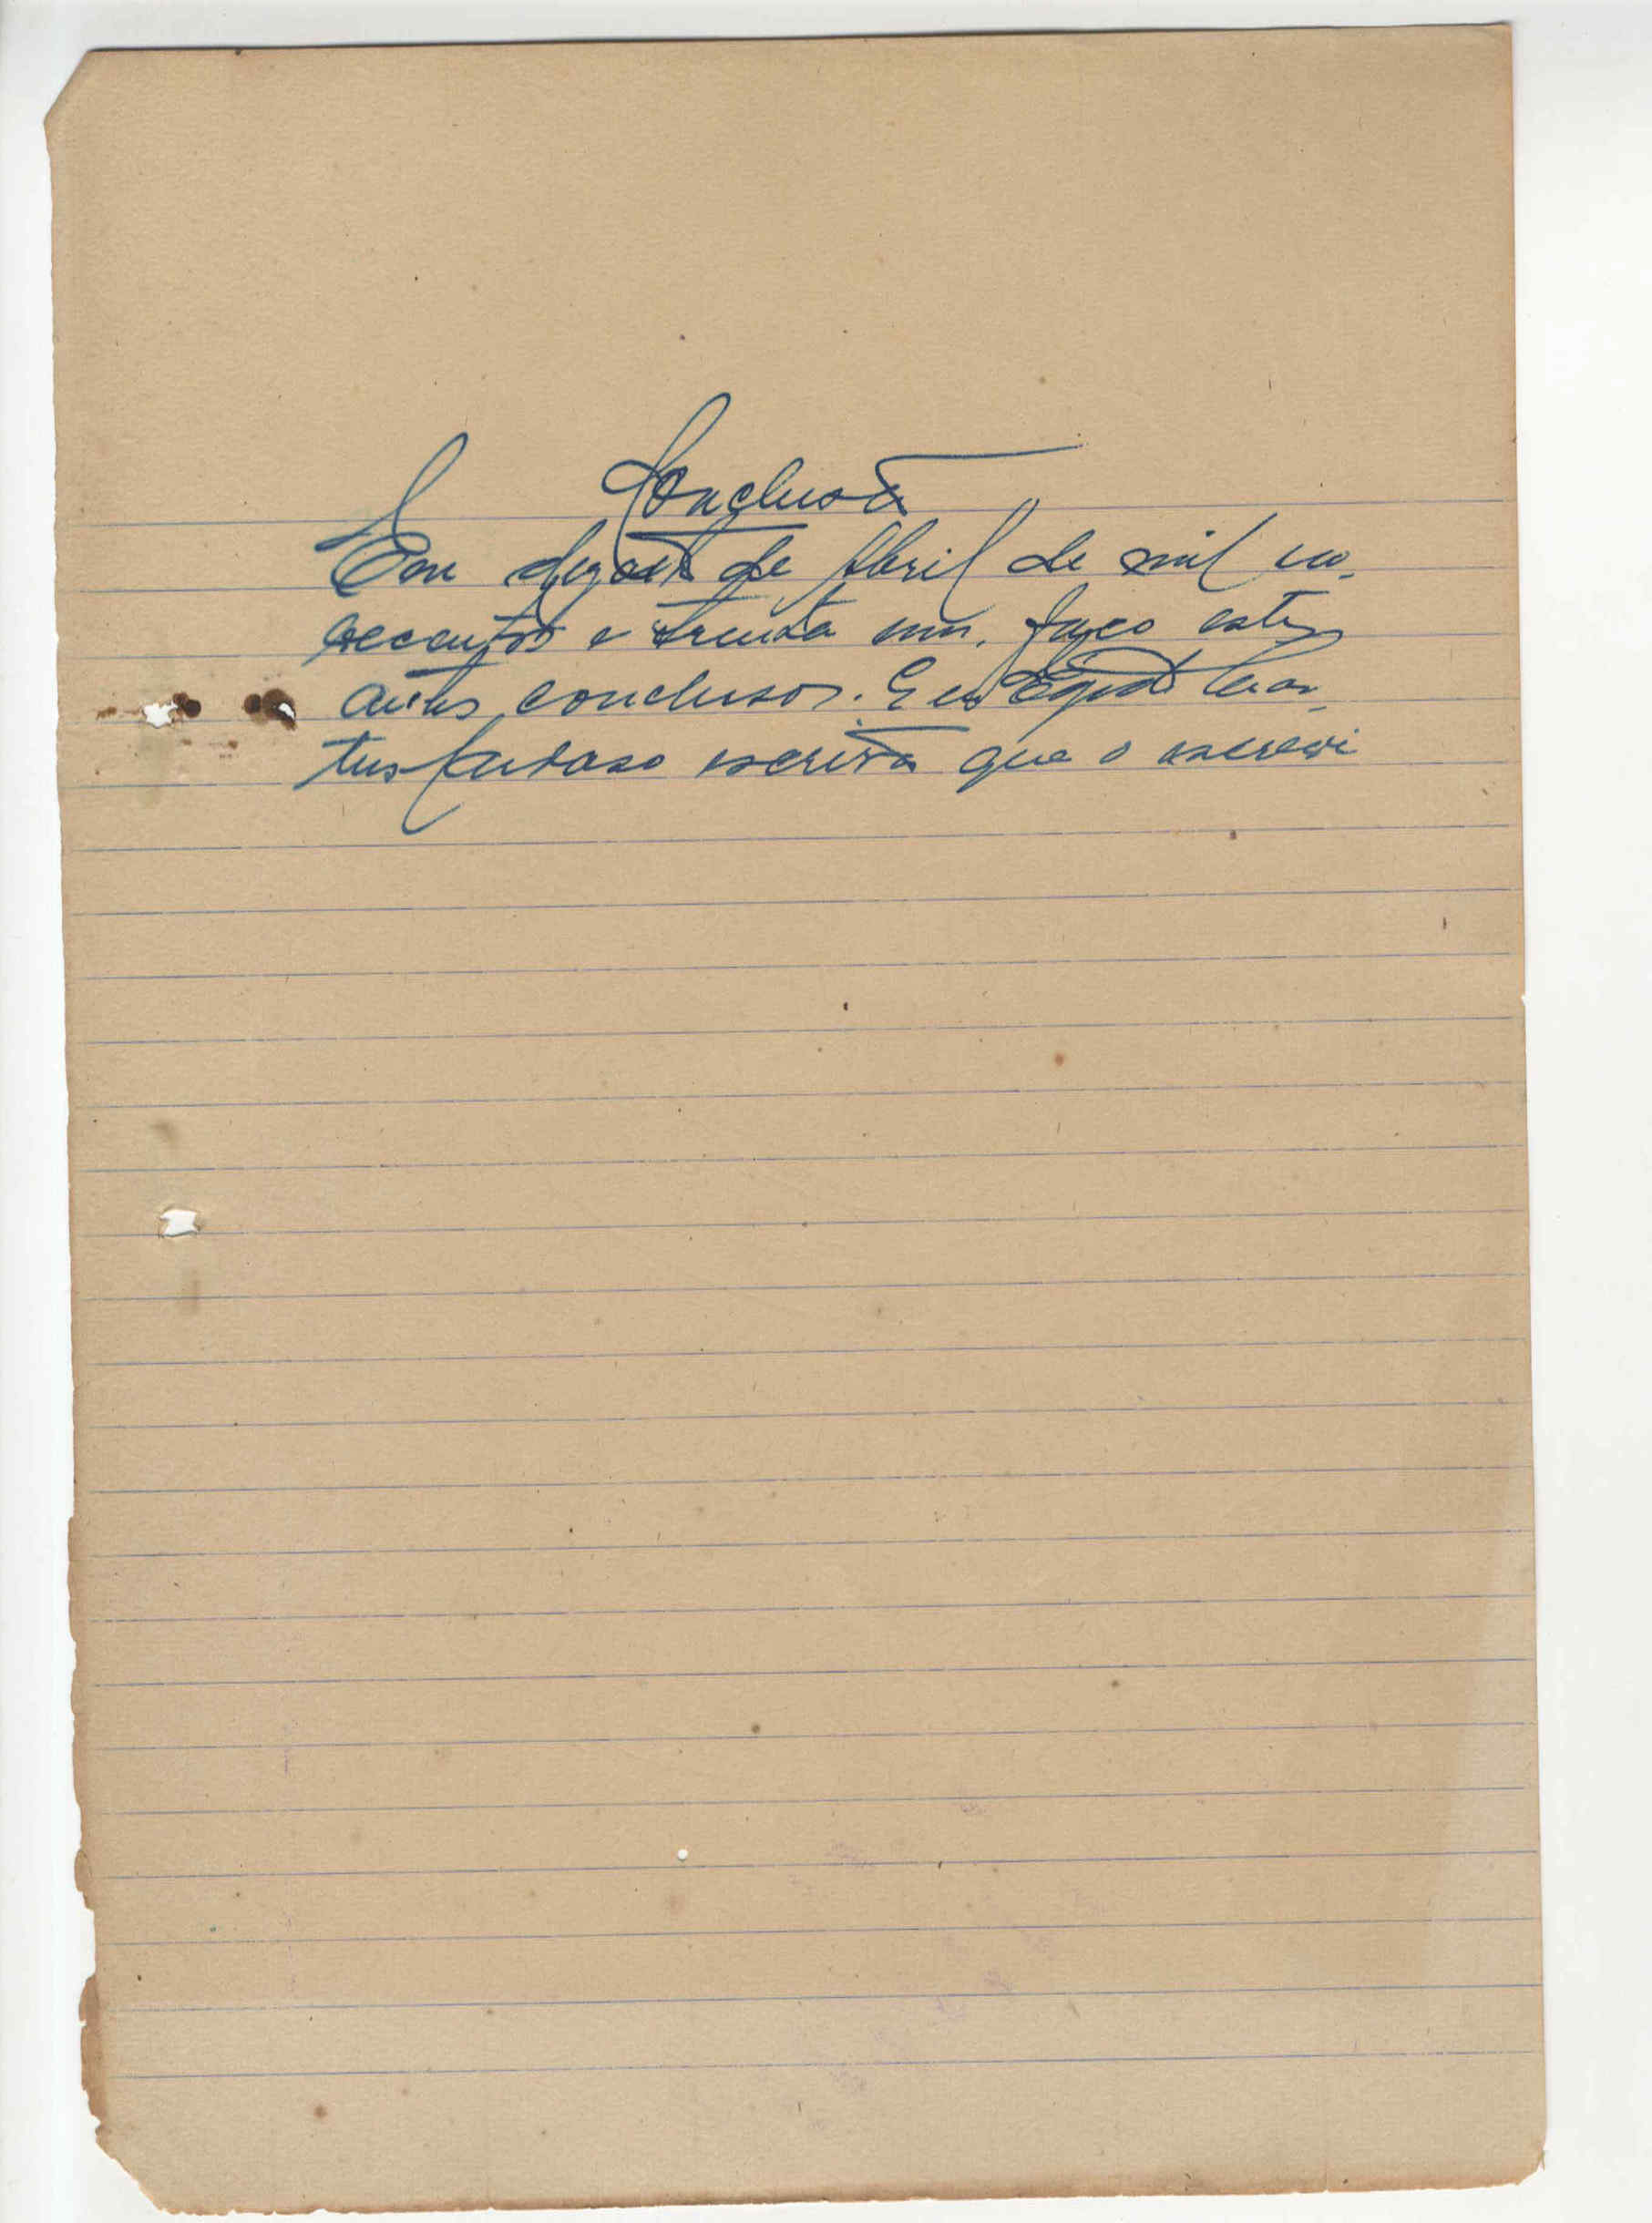 Conclusão
Em dezoito de Abril de mil no-
vecentos e trinta um. faço estes
autos conclusos. E eu Egidio
Cardoso escrivão que o escrevi